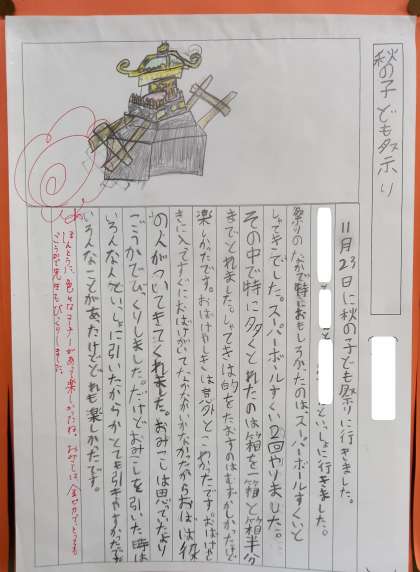 秋の子ども祭り
11月23日に秋の子ども祭りに行きました。
と といっしょに行きました。
祭りのなかで特におもしろかたのはスーパーボールすくいと
しゃてきでした。スーパーボールすくい2回やりました。
その中で特に多くとれたのは箱を一箱と箱半分
までとれました。しゃてきは的をたおすのはむずかしかたけど
楽しかったです。おばけやしきは意外とこわかったです。おばけやし
きに入ってすぐにおばけがいて
の人がついてきてくれました。おみこしは思ってたより
ごうかでびっくりしました。だけどおみこしを引いた時は
いろんな人といっしょに引いたからとても引きやすかったです
いろんなことがあたけどどれも楽しかたです。
ほんとうに、色々なコーナーがあって楽しかったね。おみこしは、金ぴかでとっても
ごうかで先生もびっくりしました